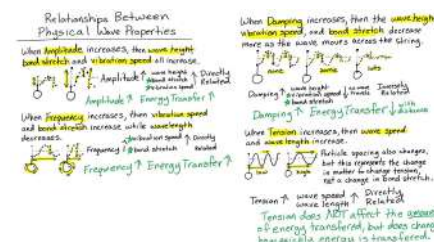 Relationships Between
Physical Wave Properties
When Amplitude increases, then wave height
bond stretch and vibration speed all increase.
Amplitude ↑ wave height
bond stretch
vibration speed ↑ Directly
Related
Amplitude ↑ Energy Transfer ↑
When Frequency increases, then vibration speed
and bond stretch increase while wavelength
decreases.
Frequency ↑ vibration speed ↑ Directly
bond stretch Related
Frequency ↑ Energy Transfer ↑
When Damping increases, then the wave height
vibration speed, and bond stretch decrease
more as the wave moves across the string.
none some lots
Damping ↑ wave height
vibration speed ↓ as wave travels Inversely
bond stretch Related
Damping ↑ Energy Transfer ↓ with
distance
When Tension increases, then wave speed
and wavelength increase.
Particle spacing also changes,
but this represents the change
in matter to change tension,
not a change in bond stretch.
low high
Tension ↑ wave speed ↑ Directly
wave length Related
Tension does NOT affect the amount
of energy transfered, but does change
how quickly energy is transfered.